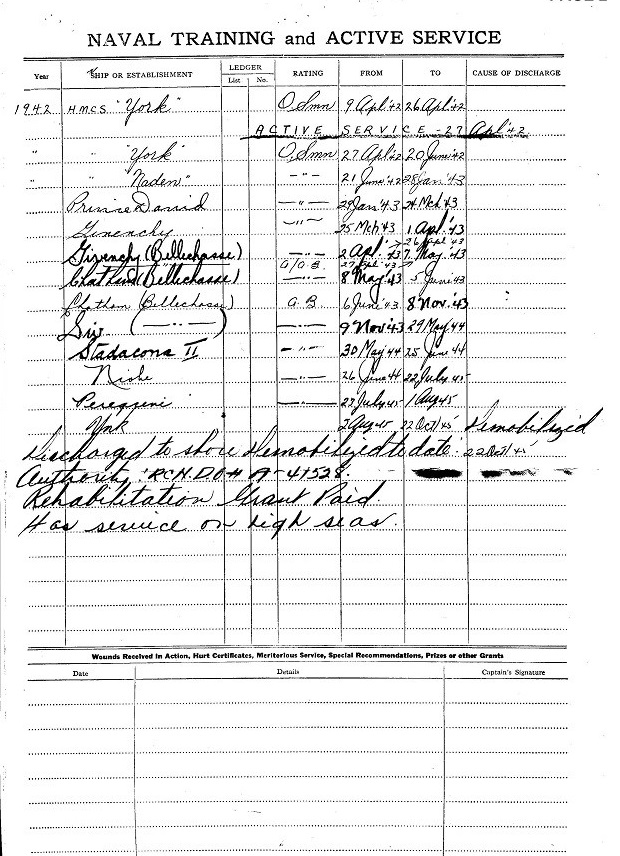 NAVAL TRAINING and ACTIVE SERVICE
Year SHIP OR ESTABLISHMENT LEDGER List No. RATING FROM TO CAUSE OF DISCHARGE
1942 H.M.C.S "York" O.Smn 9 Apl '42 26 Apl '42
ACTIVE SERVICE - 27 Apl '42
" " "York" O.Smn 27 Apl '42 20 June '42
" " "Naden" —"— 21 June '42 28 Jan '43
Prince David —"— 29 Jan '43 24 Mch '43
Givenchy —"— 25 Mch '43 1 Apl '43
26 Apl '43
Givenchy (Bellechasse) —"— 2 Apl '43 7 May '43
27 Apl '43
Chatham (Bellechasse) —"— 8 May '43 5 June '43
Chatham (Bellechasse) A.B. 6 June '43 8 Nov '43
(—"—) —"— 9 Nov '43 29 May 44
Stadacona II —"— 30 May 44 25 June 44
—"— 26 June 44 22 July 45
Peregrine —"— 23 July 45 1 Aug 45
York 2 Aug 45 22 Oct/45 Demobilized
Discharged to shore Demobilized to date. 22 Oct/45
Authority RCN.D.O# A-41538.
Rehabilitation Grant Paid.
Has service on high seas.
Wounds Received in Action, Hurt Certificates, Meritorious Service, Special Recommendations, Prizes or other Grants
Date Details Captain's Signature